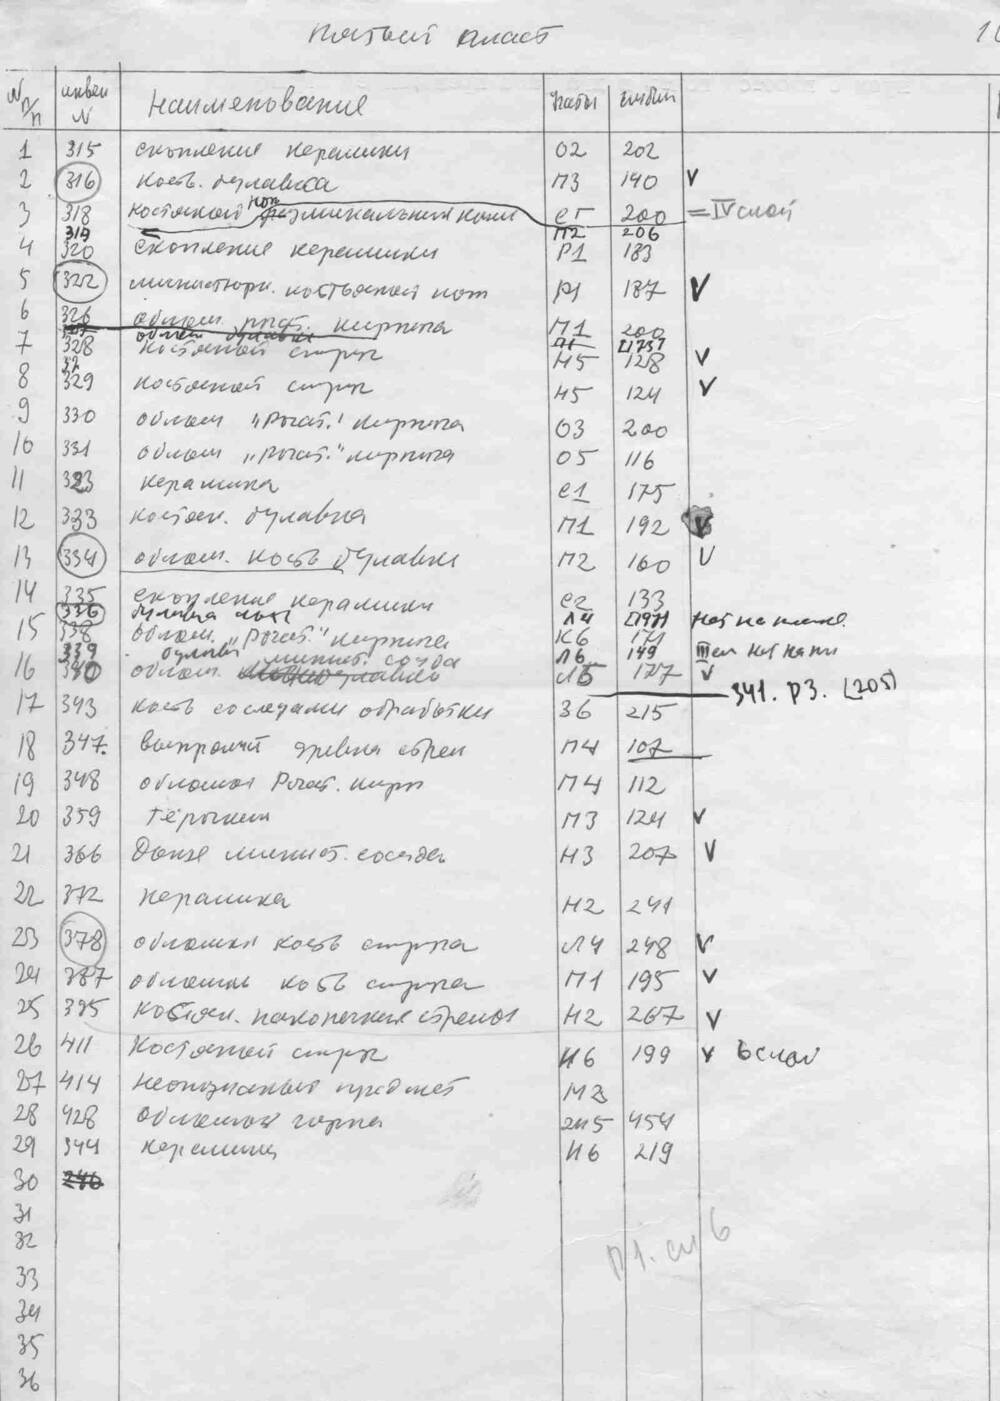 Пятый пласт
N п/п инвен N Наименование кваты глубин
1 315 скопление керамики О2 202
2 316 кость. булавка П3 190 V
3 318 костяной нож с зооморфным нави СГ 200 = IV слой
319 П2 206
4 320 скопление керамики Р1 183
5 322 миниатюрн. костяной нож Р1 187 V
6 326 облом. рогат. кирпича П1 200
облом булавки П1
7 328 костяной струг Н5 128 V
8 329 костяной струг Н5 124 V
9 330 облом "Рогат." кирпича О3 200
10 331 облом "Рогат." кирпича О5 116
11 323 керамика С1 175
12 333 костян. булавка П1 192 V
13 334 облом. кость булавки П2 160 V
14 335 скопление керамики С2 133
336 булавка Л4 [197] нет на плане
15 338 облом. "Рогат." кирпича К6 171
339 булавка Л6 149 III сл нет на пл
миниат. сосуда
16 340 облом. Л5 177 V
341. Р3. (205)
17 343 кость со следами обработки З6 215
18 347. выпрямит древка стрел П4 107
19 348 обломок Рогат. кирп П4 112
20 359 тёрочник П3 124 V
21 366 Донце миниат. сосуда Н3 207 V
22 372 керамика Н2 241
23 378 обломки кость струга Л4 248 V
24 387 обломки кость струга П1 195 V
25 395 Костян. наконечник стрелы Н2 267 V
26 411 Костяной струг И6 199 V 6 слой
27 414 неопознаный предмет М3
28 428 обломок горна ж5 454
29 344 керамика И6 219
30
31
32
П1. сл 6
33
34
35
36